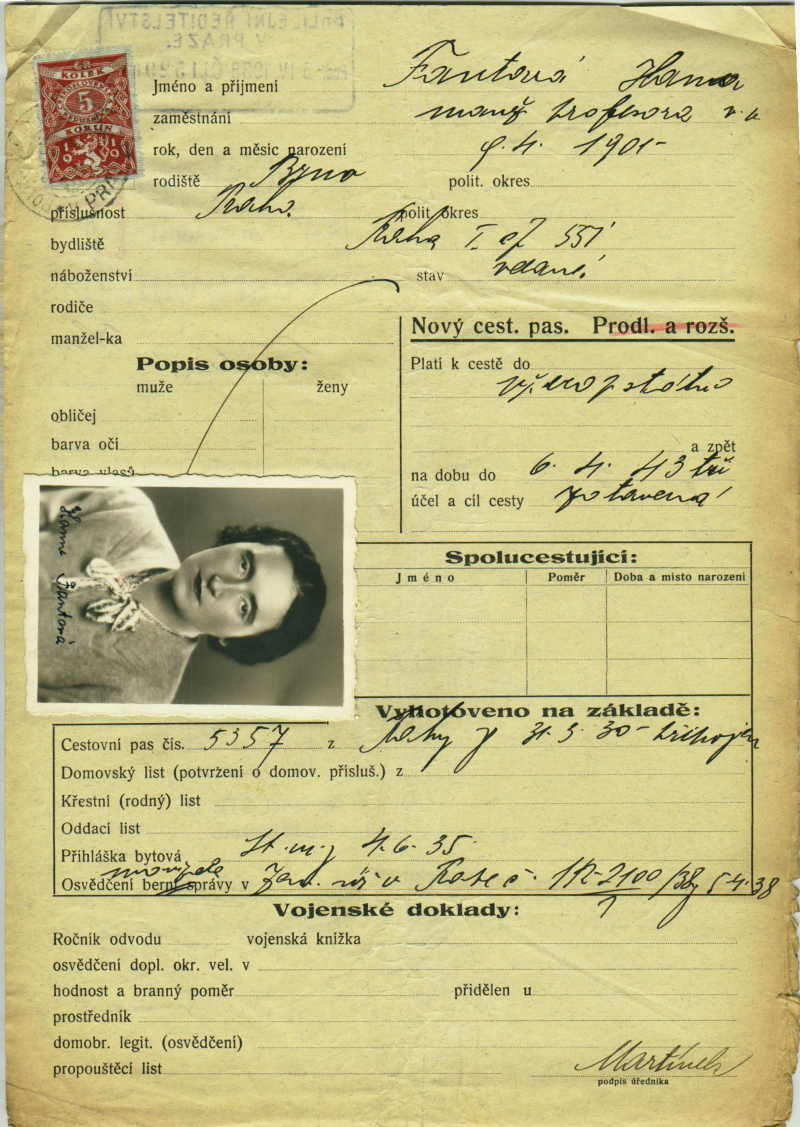 POLICEJNÍ ŘEDITELSTVÍ
V PRAZE.
KOLEK
5
KORUN
1919
Jméno a přijmení Fantová Hana
zaměstnání manž profesora v.v.
rok, den a měsíc narození 9. 4. 1901
rodiště Brno polit. okres
příslušnost Praha. polit okres
bydliště Praha I. čp 551
náboženství stav vdaná
rodiče
manžel-ka
Nový cest. pas. Prodl. a rozš.
Popis osoby:
muže ženy
obličej
barva očí
barva vlasů
Platí k cestě do
a zpět
na dobu do 6. 4. 43
účel a cíl cesty zotavená
Hanna Fantová
Spolucestující:
Jméno Poměr Doba a místo narození
Vyhotoveno na základě:
Cestovní pas čís. 5357 z Prahy 30
Domovský list (potvržení o domov. přísluš.) z
Křestní (rodný) list
Oddací list
Přihláška bytová 4.6.35
manžela
Osvědčení berní správy v 2100/38 5 4. 38
Vojenské doklady:
Ročník odvodu vojenská knížka
osvědčení dopl. okr. vel. v
hodnost a branný poměr přidělen u
prostředník
domobr. legit. (osvědčení)
propouštěcí list
Martínek
podpis úředníka